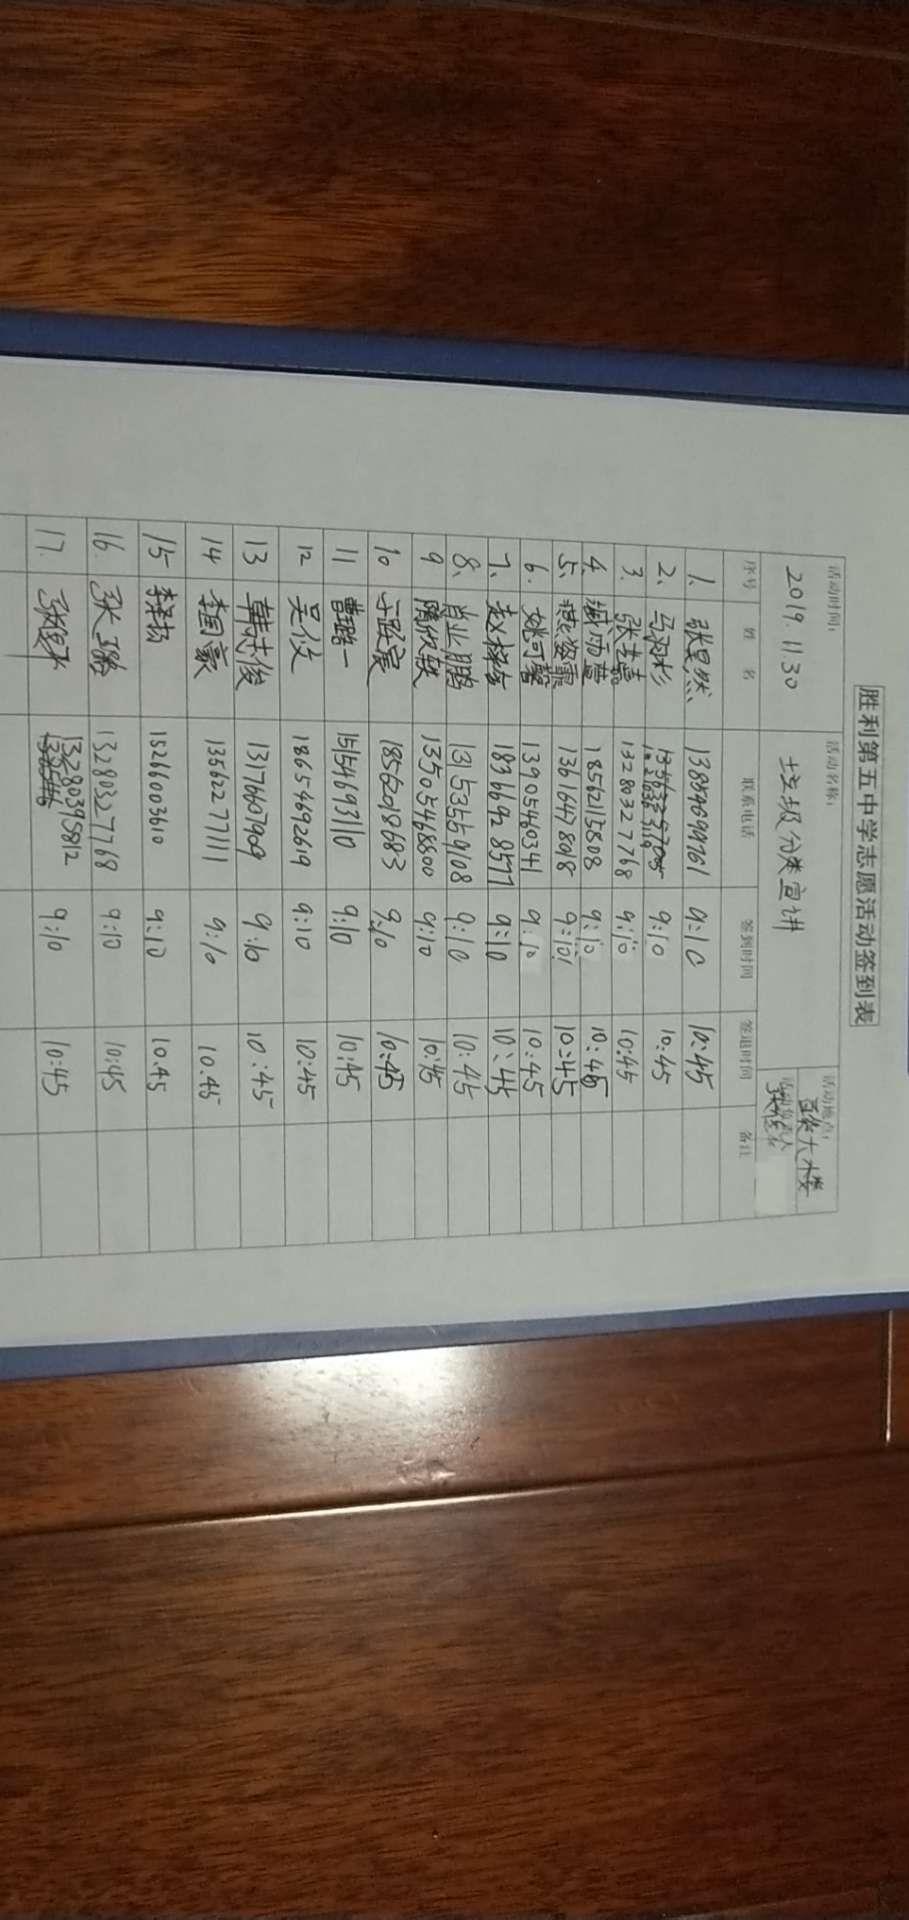 胜利第五中学志愿活动签到表
活动时间: 活动名称: 活动地点:
2019.11.30 垃圾分类宣讲 大楼
序号 姓名 联系电话 签到时间 签退时间 备注
1. 张昊然 13889699761 9:10 10:45
2. 9:10 10:45
3. 张嘉 13280327768 9:10 10:45
4. 臧雨萱 18562115808 9:10 10:45
5. 13616478018 9:10 10:45
6. 姚可馨 13905460341 9:10 10:45
7. 赵梓 18366928577 9:10 10:45
8. 肖业鹏 13153559108 9:10 10:45
9 隋欣轶 13505466800 9:10 10:45
10 18562018683 9:10 10:45
11 曹璐一 15154693110 9:10 10:45
12 吴仪 18654692619 9:10 10:45
13 韩志俊 13176607909 9:10 10:45
14 李国豪 13562277111 9:10 10.45
15 李 15266003610 9:10 10.45
16. 张璐 13280327768 9:10 10:45
17. 13280395812 9:10 10:45